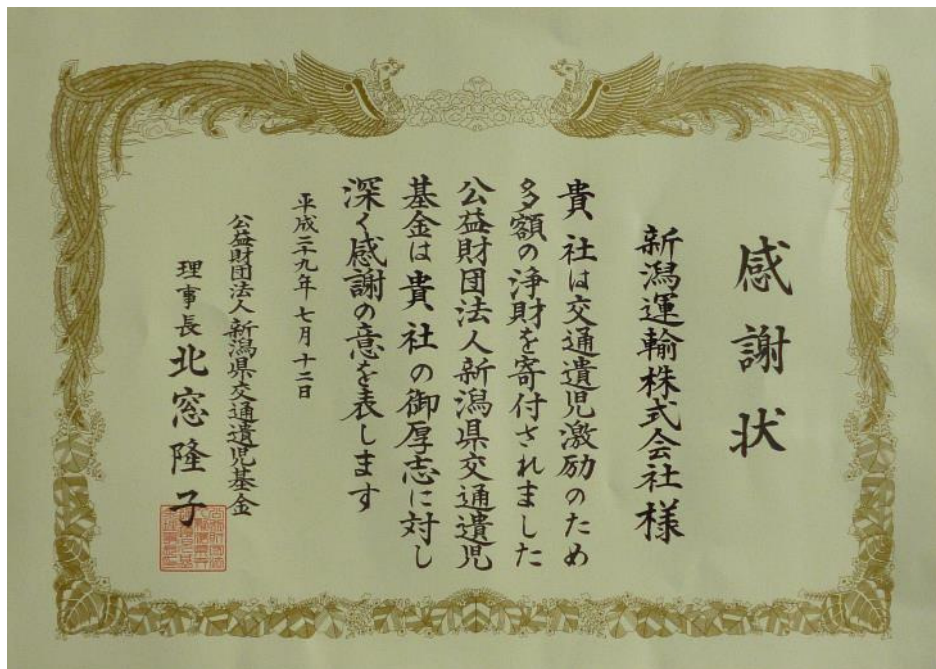 感謝状
新潟運輸株式会社様
貴社は交通遺児激励のため
多額の浄財を寄付されました
公益財団法人新潟県交通遺児
基金は貴社の御厚志に対し
深く感謝の意を表します
平成二十九年七月十二日
公益財団法人新潟県交通遺児基金
理事長北窓隆子